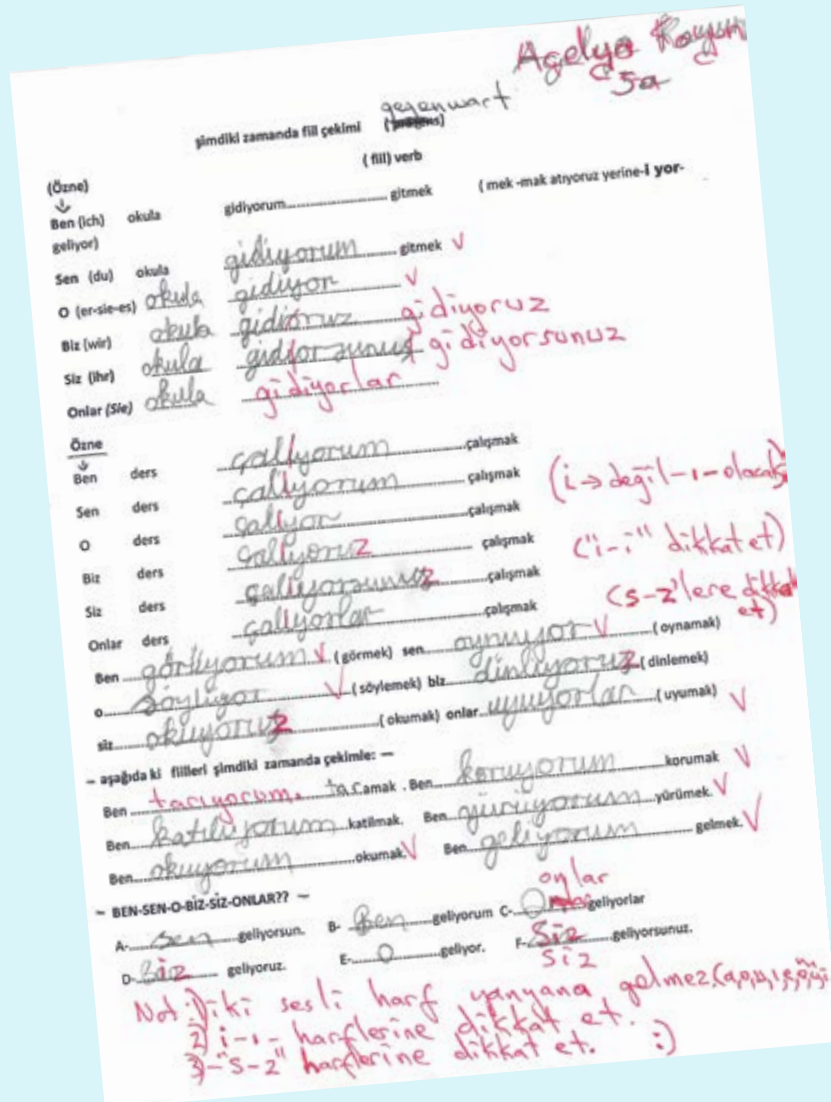 Açelya
5a
gegenwart
şimdiki zamanda fiil çekimi
(Özne) ( fiil) verb
Ben (ich) okula gidiyorum.............................. gitmek ( mek -mak atıyoruz yerine-i yor-
geliyor)
Sen (du) okula gidiyorum ........ gitmek V
O (er-sie-es) okula gidiyor V
Biz (wir) okula gidioruz gidiyoruz
Siz (ihr) okula gidiyorsunuz
Onlar (Sie) okula gidiyorlar
Özne
Ben ders çaliyorum ........çalışmak
Sen ders çaliyorum ........çalışmak (i → değil -ı- olacak)
O ders çaliyor ........çalışmak
Biz ders çaliyoruz ........ çalışmak ("i-i" dikkat et)
Siz ders çaliyorsunuz ........çalışmak (s-z'lere dikkat et)
Onlar ders çaliyorlar ........çalışmak
Ben görüyorum V ( görmek) sen oynuyor V ........( oynamak)
o söylüyor V ........( söylemek) biz dinliyoruz ( dinlemek)
siz okuyoruz ........( okumak) onlar uyuyorlar ........( uyumak) V
– aşağıda ki fiilleri şimdiki zamanda çekimle: –
Ben tarıyorum. taramak . Ben koruyorum ........korumak V
Ben katılıyorum ........katılmak. Ben yürüyorum ........yürümek. V
Ben okuyorum ........okumak. V Ben geliyorum ........ gelmek. V
– BEN-SEN-O-BİZ-SİZ-ONLAR?? –
onlar
A- sen ........geliyorsun. B- Ben ........geliyorum C- ........geliyorlar
D- Biz ........ geliyoruz. E- O ........geliyor. F- Siz ........geliyorsunuz.
siz
Not: 1) iki sesli harf yanyana gelmez
2) i-ı- harflerine dikkat et.
3) -"s-z" harflerine dikkat et. :)